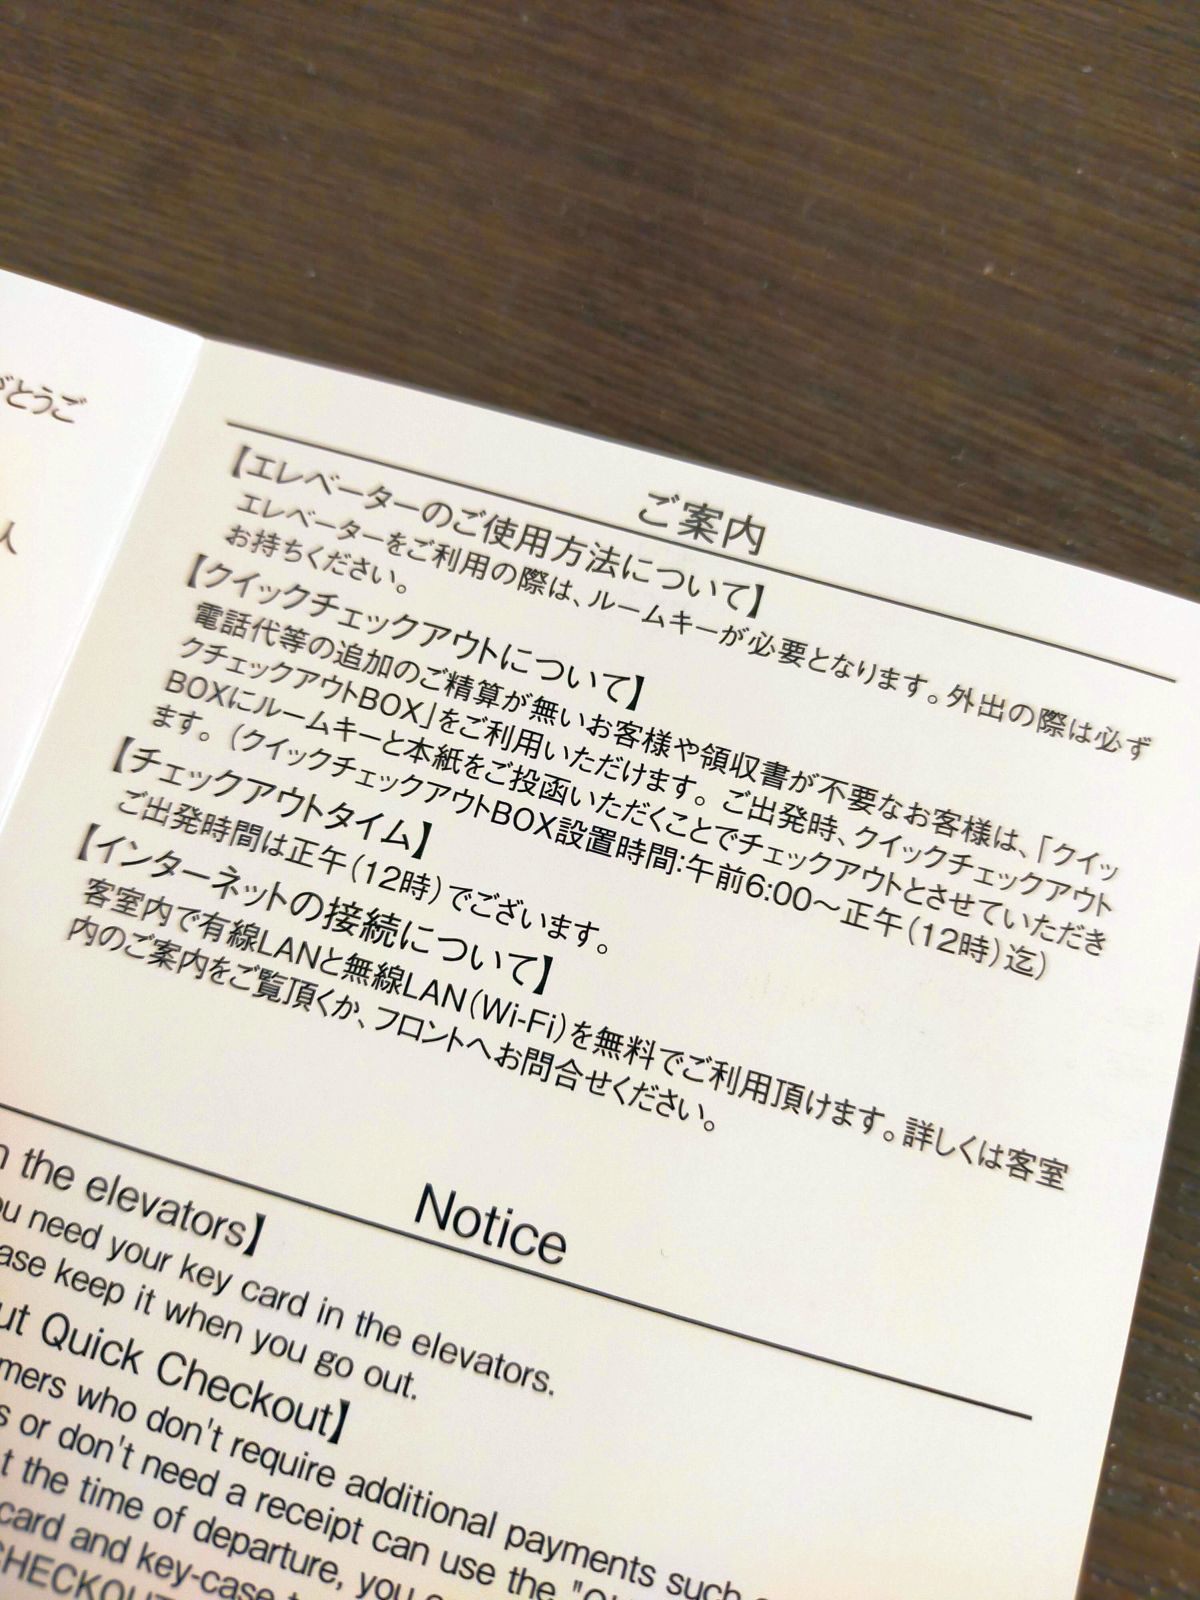 がとうご
人
ご案内
【エレベーターのご使用方法について】
エレベーターをご利用の際は、ルームキーが必要となります。外出の際は必ず
お持ちください。
【クイックチェックアウトについて】
電話代等の追加のご精算が無いお客様や領収書が不要なお客様は、「クイッ
クチェックアウトBOX」をご利用いただけます。ご出発時、クイックチェックアウト
BOXにルームキーと本紙をご投函いただくことでチェックアウトとさせていただき
ます。(クイックチェックアウトBOX設置時間:午前6:00～正午(12時)迄)
【チェックアウトタイム】
ご出発時間は正午(12時)でございます。
【インターネットの接続について】
客室内で有線LANと無線LAN(Wi-Fi)を無料でご利用頂けます。詳しくは客室
内のご案内をご覧頂くか、フロントへお問合せください。
Notice
the elevators】
need your key card in the elevators.
keep it when you go out.
Quick Checkout】
who don't require additional payments such
or don't need a receipt can use the
the time of departure, you
card and key-case
CHECKOUT